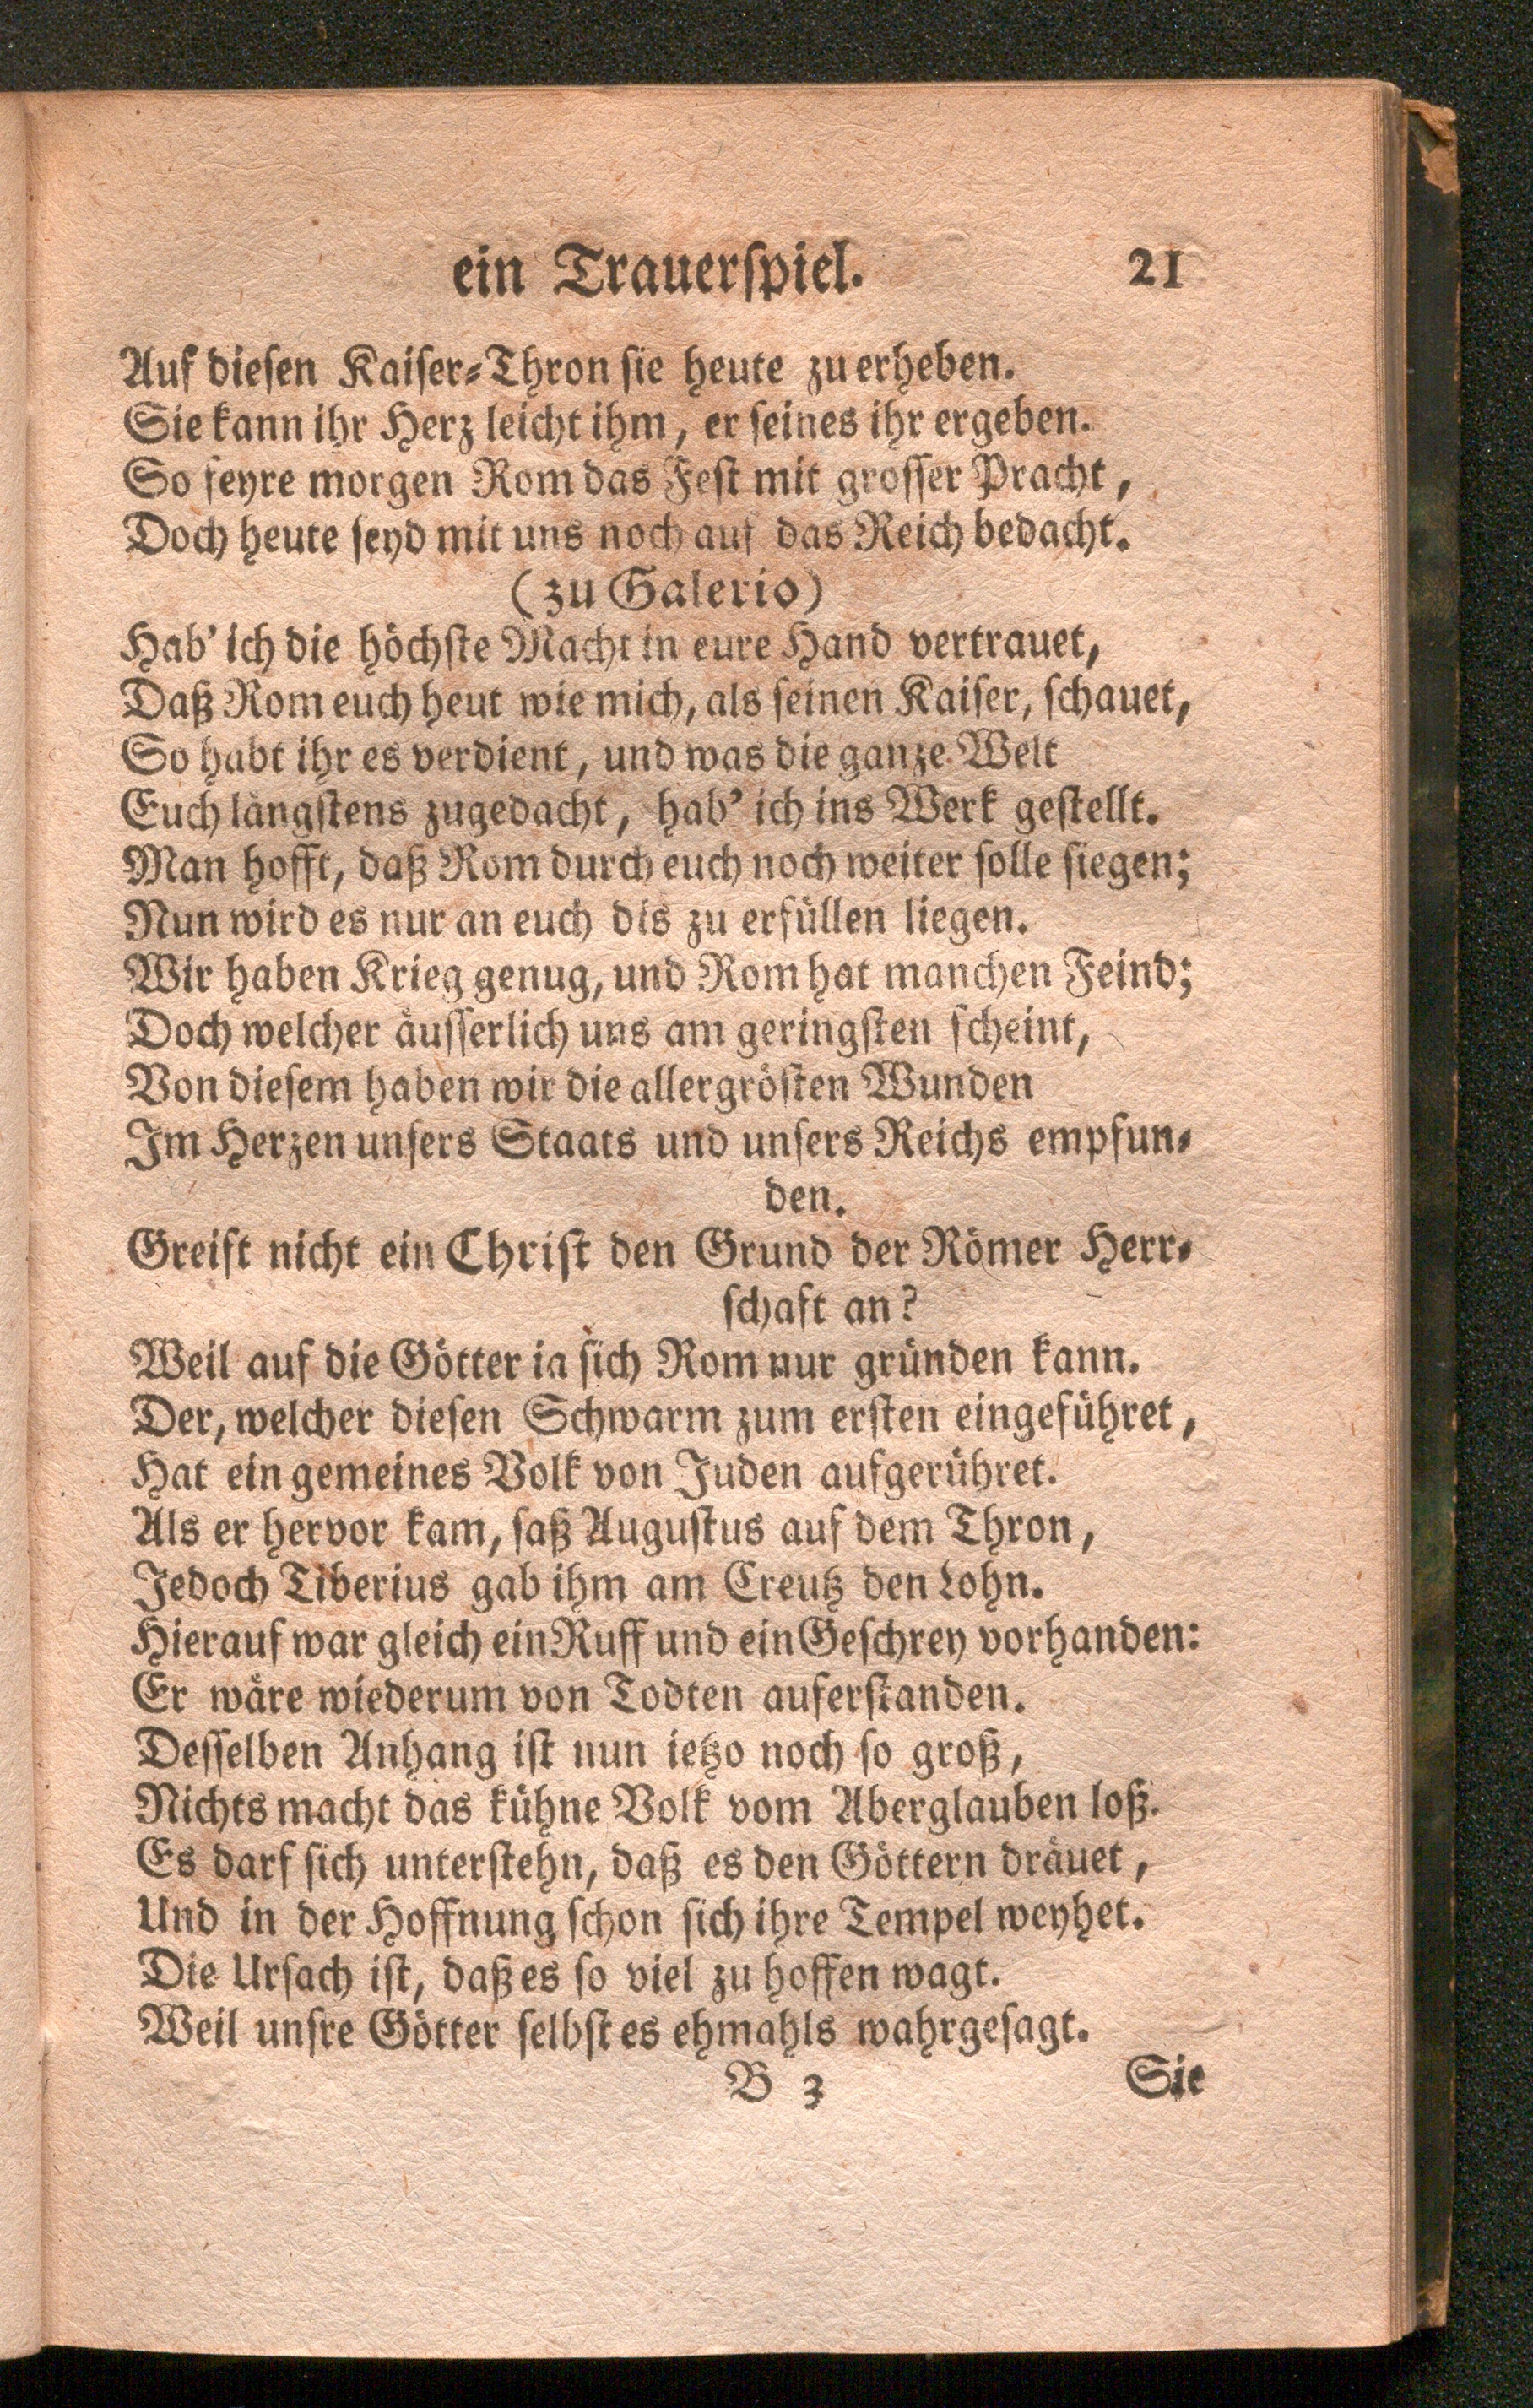 ein Trauerspiel. 21
Auf diesen Kaiser-Thron sie heute zu erheben.
Sie kann ihr Herz leicht ihm, er seines ihr ergeben.
So feyre morgen Rom das Fest mit grosser Pracht,
Doch heute seyd mit uns noch auf das Reich bedacht.
(zu Galerio)
Hab' ich die höchste Macht in eure Hand vertrauet,
Daß Rom euch heut wie mich, als seinen Kaiser, schauet,
So habt ihr es verdient, und was die ganze Welt
Euch längstens zugedacht, hab' ich ins Werk gestellt.
Man hofft, daß Rom durch euch noch weiter solle siegen;
Nun wird es nur an euch dis zu erfüllen liegen.
Wir haben Krieg genug, und Rom hat manchen Feind;
Doch welcher äusserlich uns am geringsten scheint,
Von diesem haben wir die allergrösten Wunden
Im Herzen unsers Staats und unsers Reichs empfun-
den.
Greift nicht ein Christ den Grund der Römer Herr-
schaft an?
Weil auf die Götter ia sich Rom nur gründen kann.
Der, welcher diesen Schwarm zum ersten eingeführet,
Hat ein gemeines Volk von Juden aufgerühret.
Als er hervor kam, saß Augustus auf dem Thron,
Jedoch Tiberius gab ihm am Creutz den Lohn.
Hierauf war gleich ein Ruff und ein Geschrey vorhanden:
Er wäre wiederum von Todten auferstanden.
Desselben Anhang ist nun ietzo noch so groß,
Nichts macht das kühne Volk vom Aberglauben loß.
Es darf sich unterstehn, daß es den Göttern dräuet,
Und in der Hoffnung schon sich ihre Tempel weyhet.
Die Ursach ist, daß es so viel zu hoffen wagt.
Weil unsre Götter selbst es ehmahls wahrgesagt.
B 3 Sie